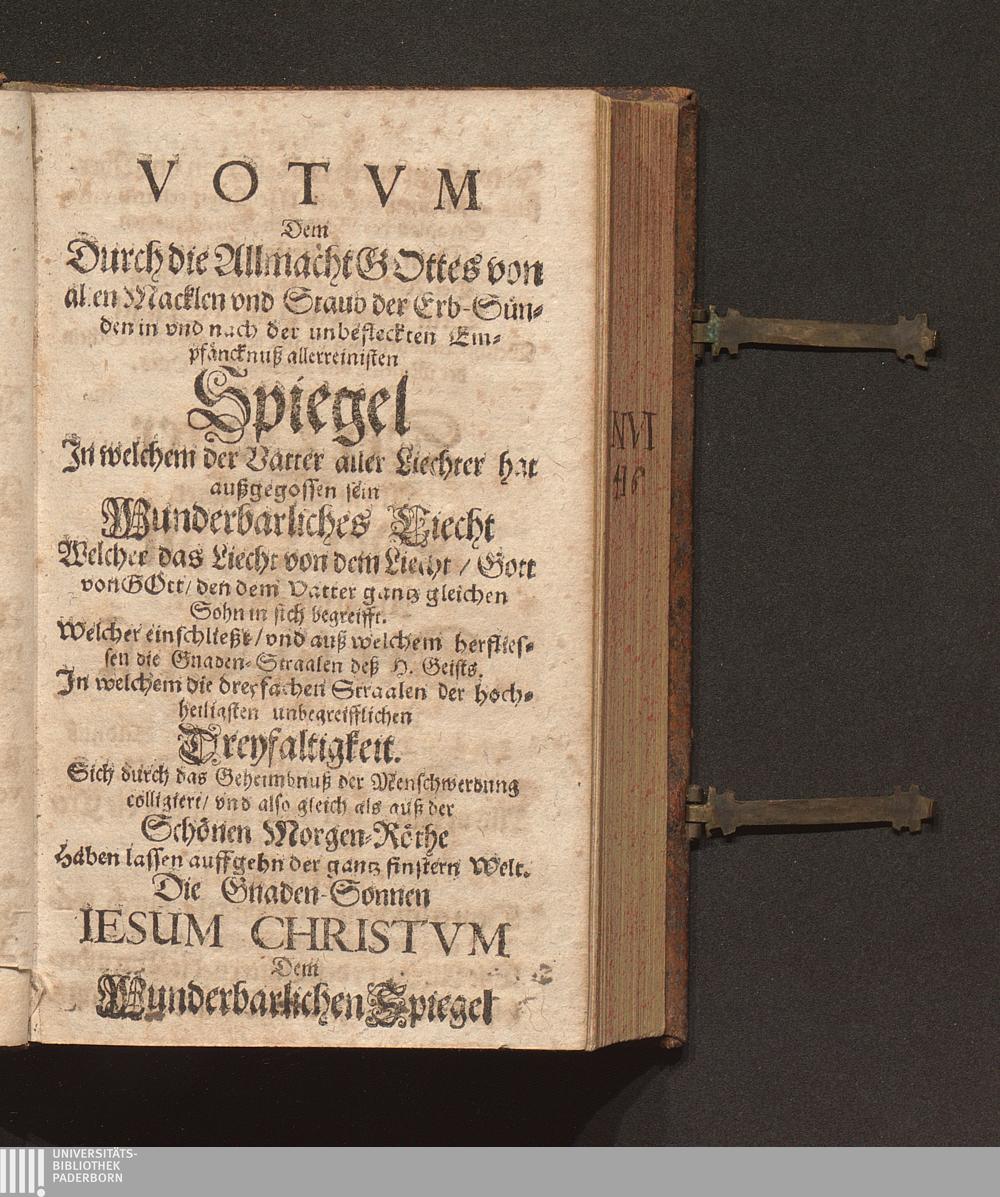 VOTVM
Dem
Durch die Allmacht GOttes von
allen Macklen vnd Staub der Erb-Sün-
den in vnd nach der unbefleckten Em-
pfäncknuß allerreinisten
Spiegel
In welchem der Vatter aller Liechter hat
außgegossen sein
Wunderbarliches Liecht
Welcher das Liecht von dem Liecht / Gott
von GOtt / den dem Vatter gantz gleichen
Sohn in sich begreifft.
Welcher einschließt / vnd auß welchem herflies-
sen die Gnaden-Straalen deß H. Geists.
In welchem die dreyfachen Straalen der hoch-
heiligsten unbegreifflichen
Dreyfaltigkeit.
Sich durch das Geheimbnuß der Menschwerdung
colligiert / vnd also gleich als auß der
Schönen Morgen-Röthe
Haben lassen auffgehn der gantz finstern Welt.
Die Gnaden-Sonnen
IESUM CHRISTVM
Dem
Wunderbarlichen Spiegel
NVI
UNIVERSITÄTS-
BIBLIOTHEK
PADERBORN